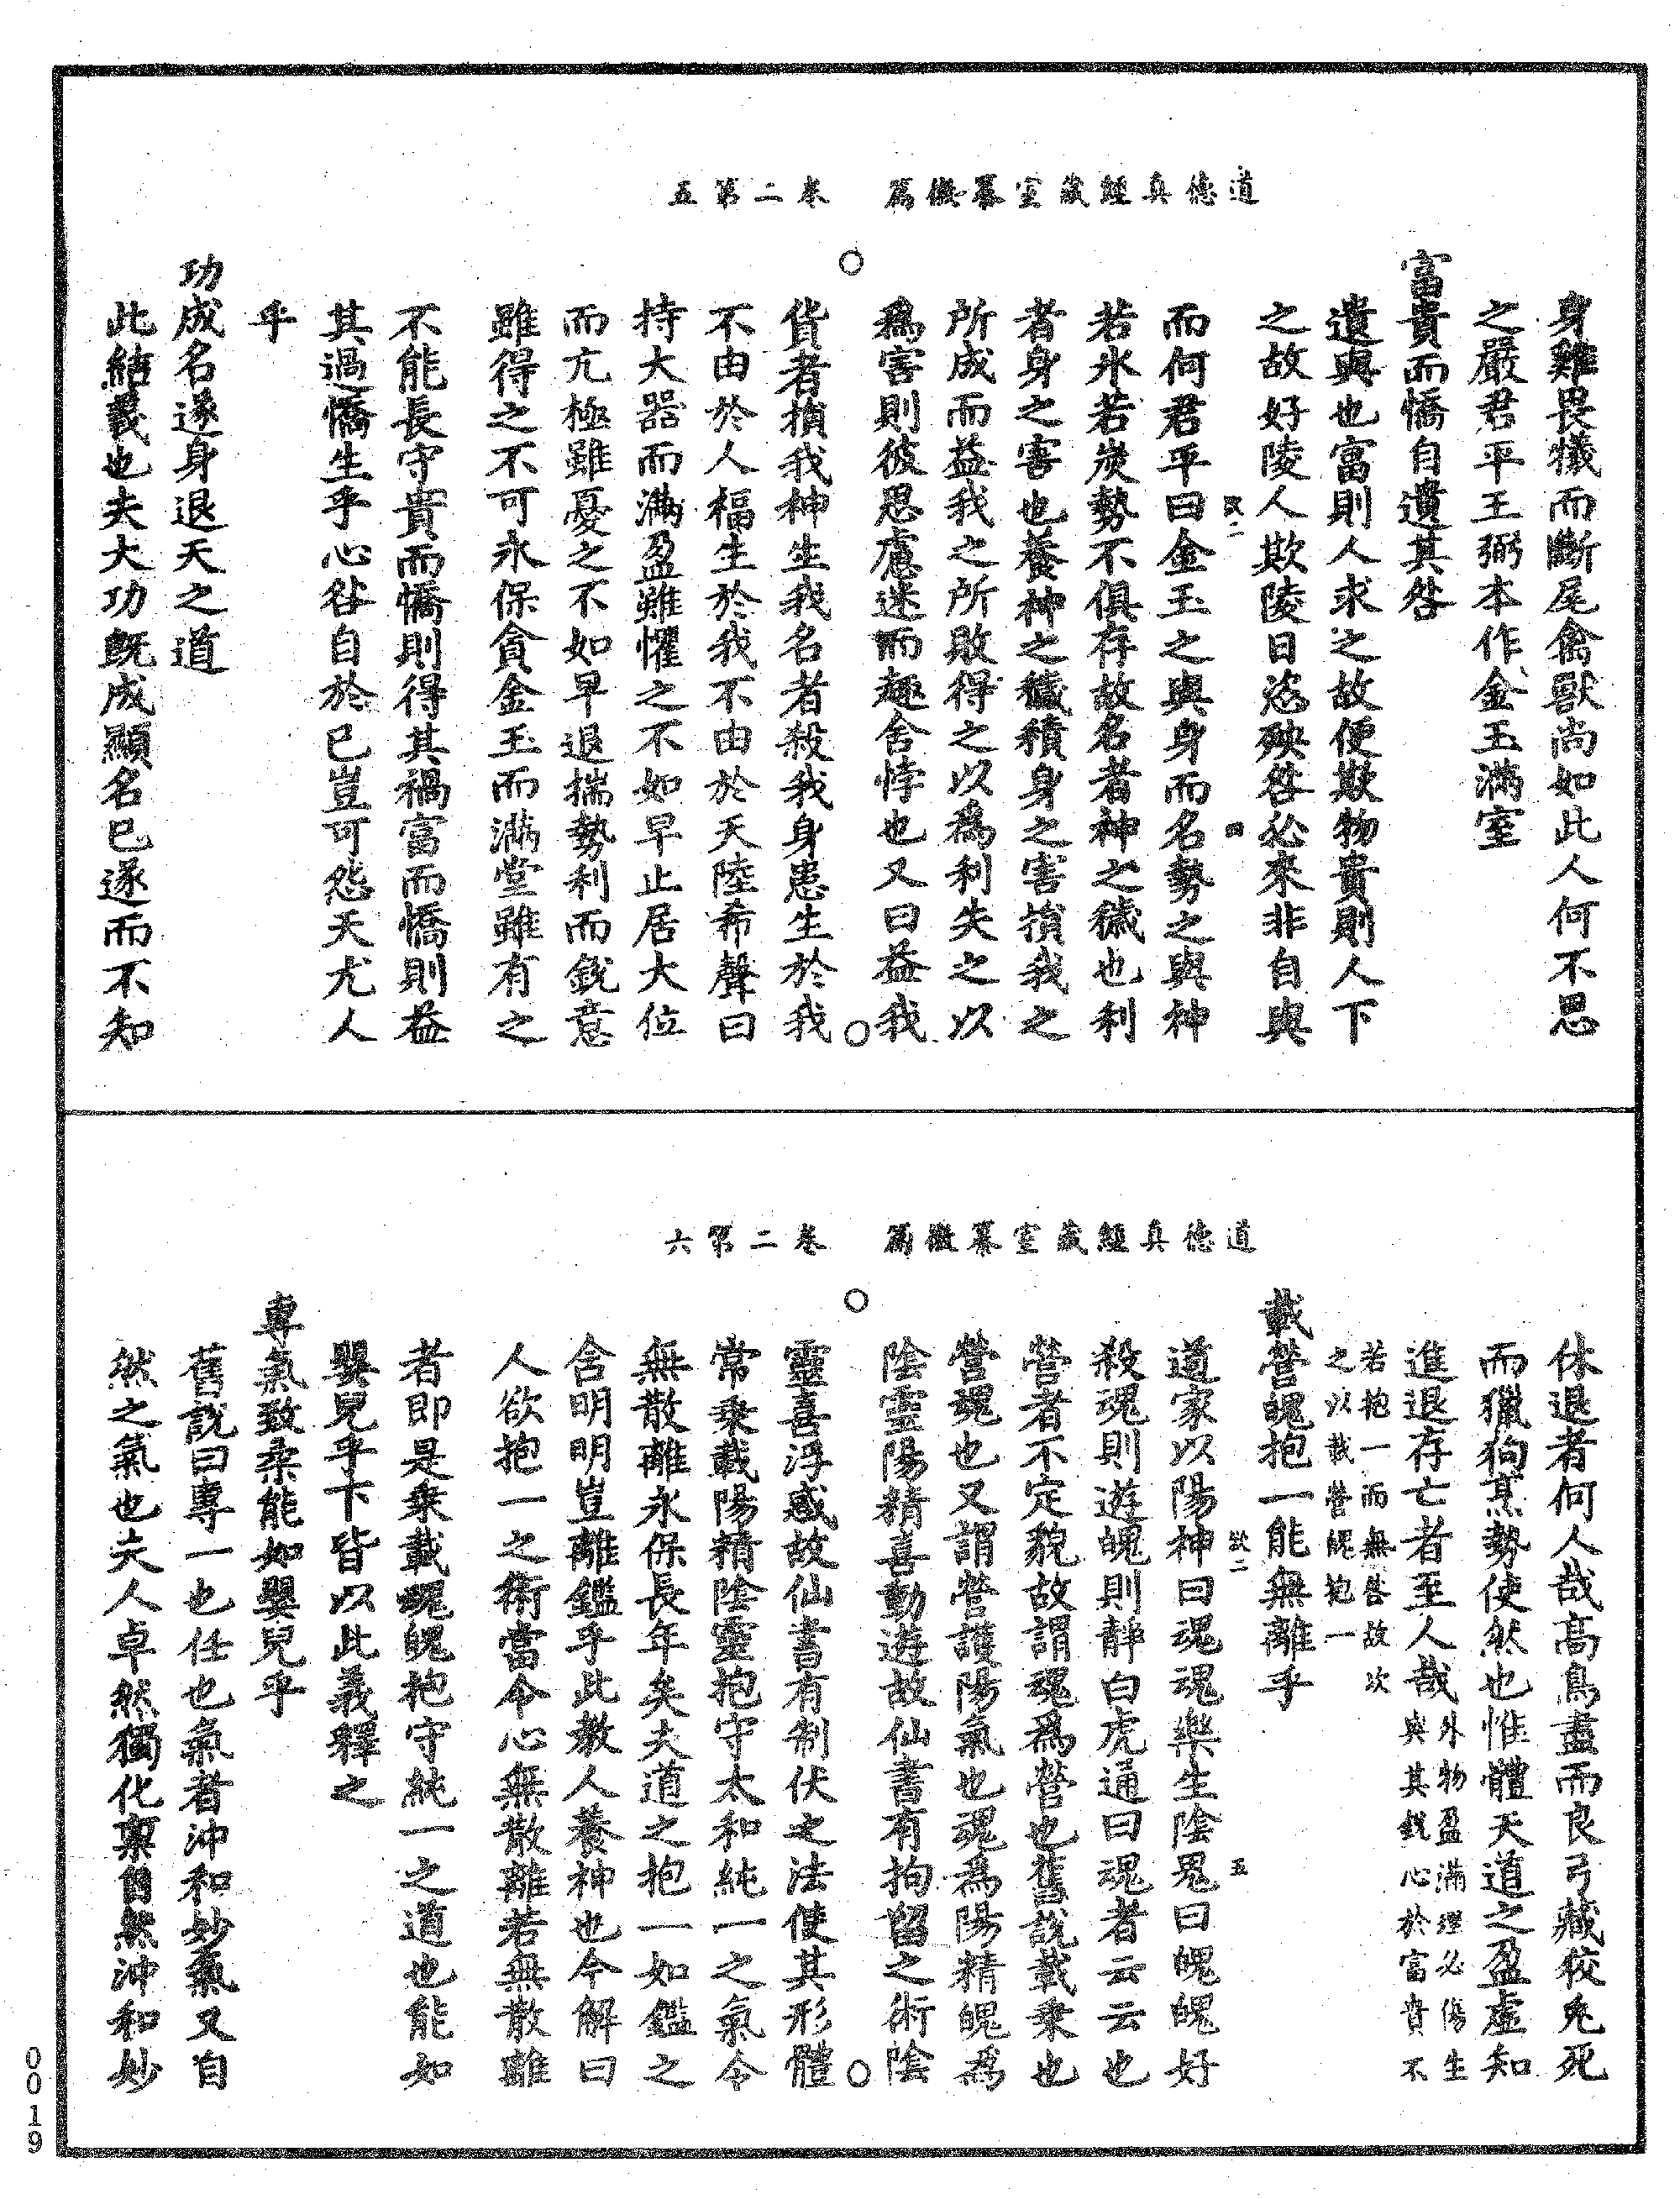 道德真經藏室纂微篇　卷二第五
身雞畏犧而斷尾禽獸尚如此人何不思
之嚴君平王弼本作金玉滿室
富貴而憍自遺其咎
遺與也富則人求之故便欺物貴則人下
之故好陵人欺陵日恣殃咎必來非自與
欲二
四
而何君平曰金玉之與身而名勢之與神
若氷若炭勢不俱存故名者神之穢也利
者身之害也養神之穢積身之害損我之
所成而益我之所敗得之以爲利失之以
爲害則彼思慮迷而趣舍悖也又曰益我
貨者損我神生我名者殺我身患生於我
不由於人福生於我不由於天陸希聲曰
持大器而滿盈雖懼之不如早止居大位
而亢極雖憂之不如早退揣勢利而銳意
雖得之不可永保貪金玉而滿堂雖有之
不能長守貴而憍則得其禍富而憍則益
其過憍生乎心咎自於已豈可怨天尤人
乎
功成名遂身退天之道
此結義也夫大功旣成顯名已遂而不知
道德真經藏室纂微篇　卷二第六
休退者何人哉高鳥盡而良弓藏狡兎死
而獵狗烹勢使然也惟體天道之盈虛知
進退存亡者至人哉外物盈滿理必傷生
與其銳心於富貴不
若抱一而無咎故次
之以載營魄抱一
載營魄抱一能無離乎
欲二
五
道家以陽神曰魂魂樂生陰鬼曰魄魄好
殺魂則遊魄則靜白虎通曰魂者云云也
營者不定貌故謂魂爲營也舊說載乘也
營魂也又謂營護陽氣也魂爲陽精魄爲
陰靈陽精喜動遊故仙書有拘留之術陰
靈喜浮惑故仙書有制伏之法使其形體
常乘載陽精陰靈抱守太和純一之氣令
無散離永保長年矣夫道之抱一如鑑之
含明明豈離鑑乎此教人養神也今解曰
人欲抱一之術當令心無散離若無散離
者即是乘載魂魄抱守純一之道也能如
嬰兒乎下皆以此義釋之
專氣致柔能如嬰兒乎
舊說曰專一也任也氣者沖和妙氣又自
然之氣也夫人卓然獨化稟自然沖和妙
0019